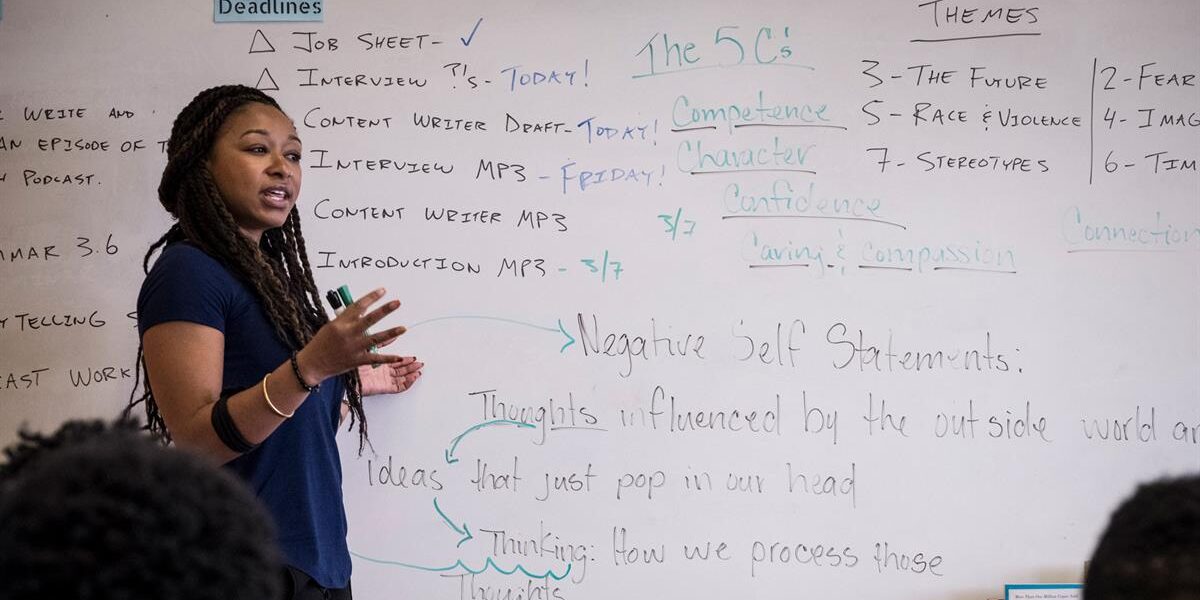 Deadlines
△ JOB SHEET- ✓
△ INTERVIEW ?'s - TODAY!
CONTENT WRITER DRAFT- TODAY!
INTERVIEW MP3 - FRIDAY!
CONTENT WRITER MP3
INTRODUCTION MP3 - 3/7
WRITE AND
AN EPISODE OF
PODCAST.
3.6
TELLING
WORK
The 5 C's
Competence
Character
Confidence
3/7
Caring & compassion
Connection
THEMES
3 - THE FUTURE
5 - RACE & VIOLENCE
7 - STEREOTYPES
2 - FEAR
4 - IMAG
6 - TIM
Negative Self Statements:
Thoughts influenced by the outside world
Ideas that just pop in our head
Thinking: How we process those
Thoughts